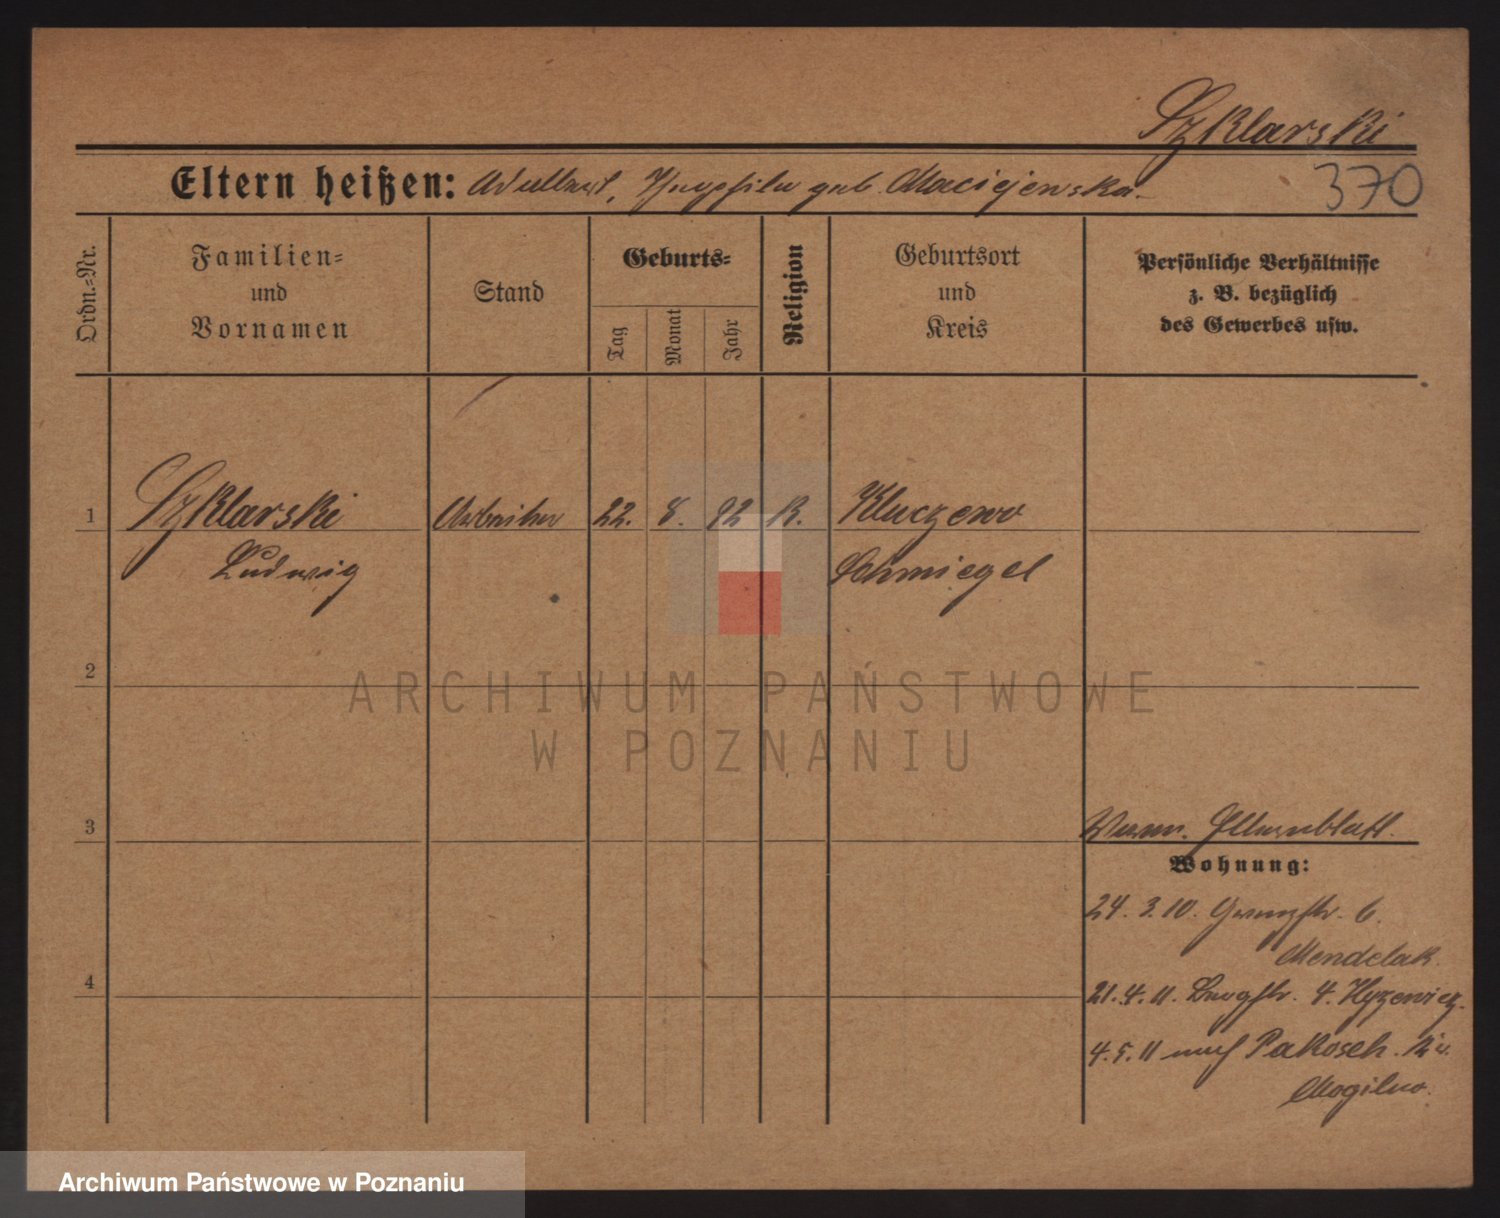 Szklarski
Eltern heißen: Adalbert, geb. Maciejewska.
370
Ordn.-Nr.
Familien-
und
Vornamen
Stand
Geburts-
Tag
Monat
Jahr
Religion
Geburtsort
und
Kreis
Persönliche Verhältnisse
z. B. bezüglich
des Gewerbes usw.
1 Szklarski Arbeiter 22. 8. 92 K. Kluczewo
Ludwig Schmiegel
2
3
Elternblatt.
Wohnung:
24. 3. 10. 6.
Mendelak.
4
21. 4. 11. 4. Hyzewicz.
4. 5. 11 nach Pakosch. Kr.
Mogilno.
ARCHIWUM PAŃSTWOWE
W POZNANIU
Archiwum Państwowe w Poznaniu